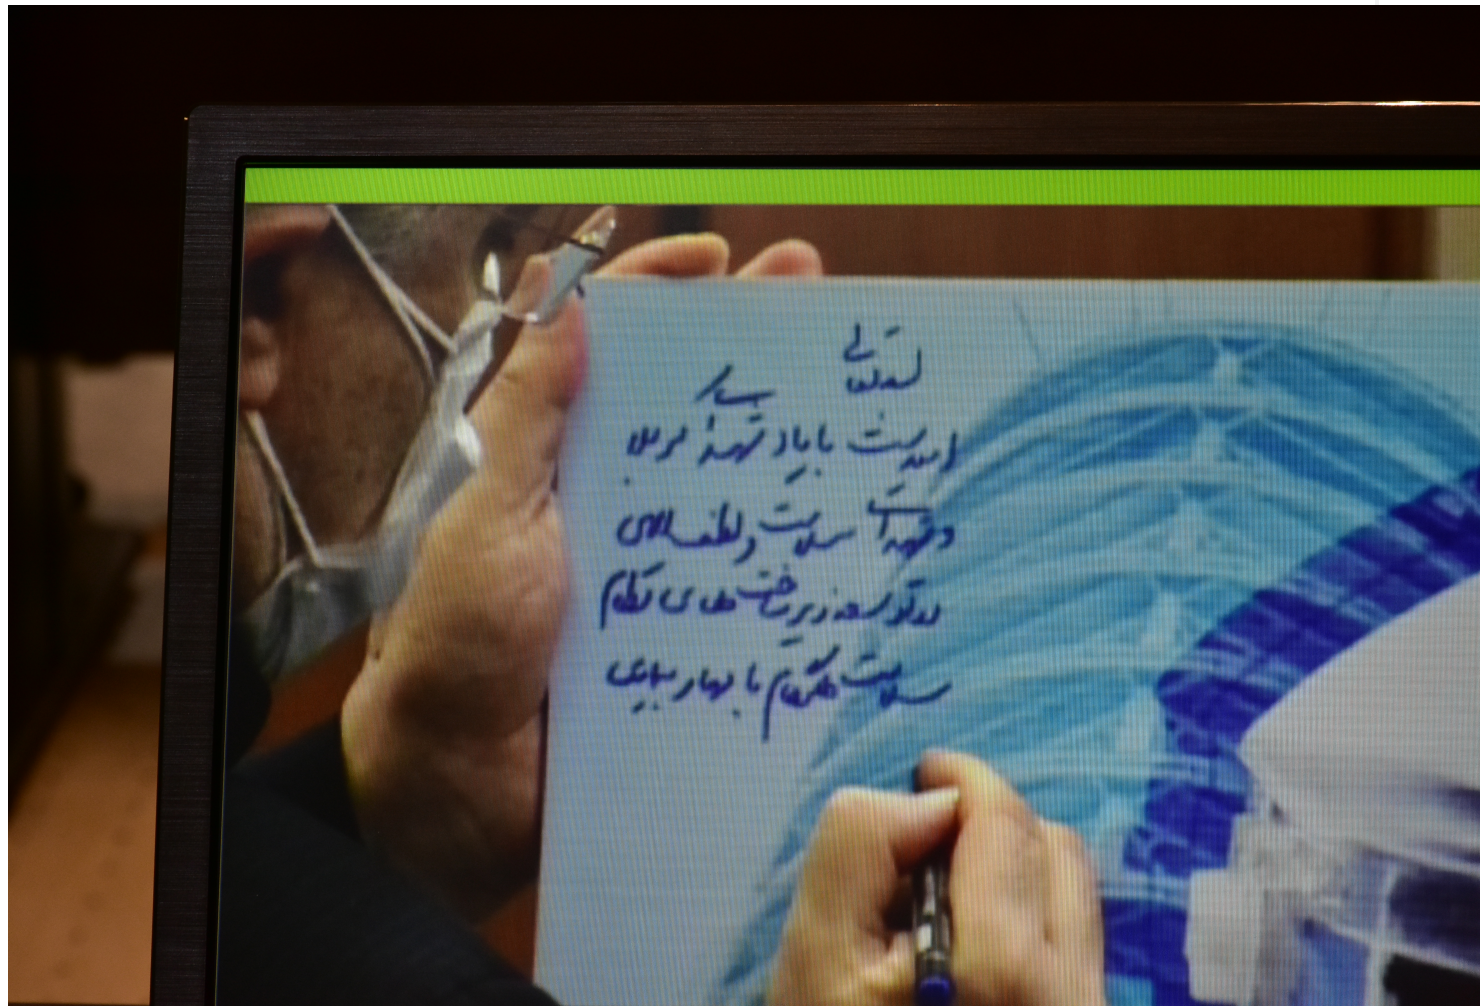 بسمه تعالی
امید است با یاد شهدای کربلا
و شهدای سلامت و لطف الهی
در توسعه زیرساخت های نظام
سلامت همگام با بهار